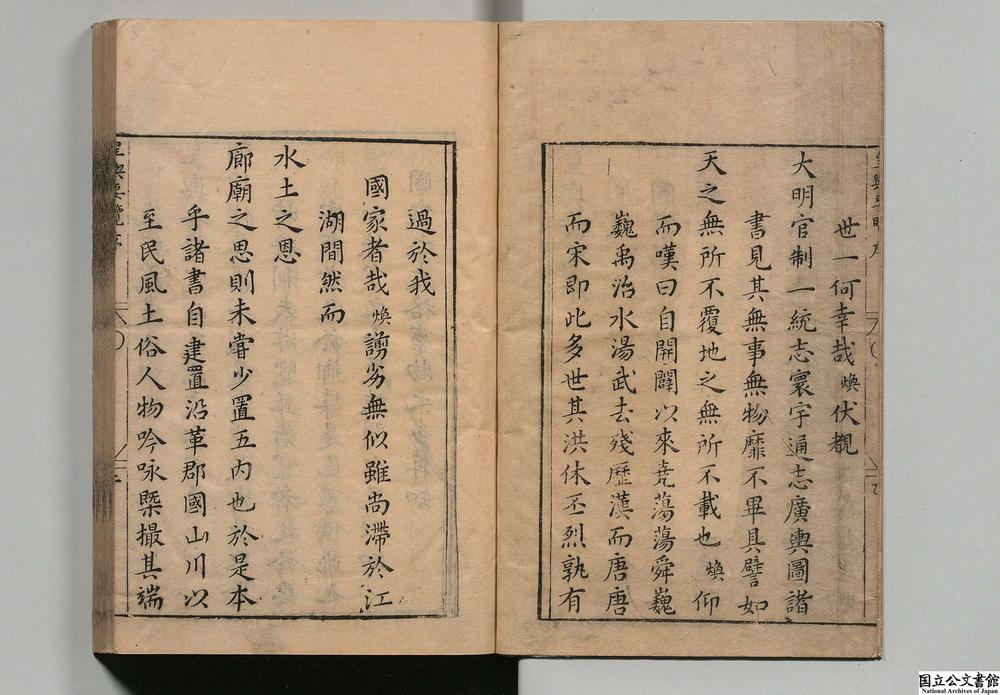 世一何幸哉煥伏覩
大明官制一統志寰宇通志廣輿圖諸
書見其無事無物靡不畢具譬如
天之無所不覆地之無所不載也煥仰
而嘆曰自開闢以來堯蕩蕩舜巍
巍禹治水湯武去殘歷漢而唐唐
而宋即此多世其洪休丕烈孰有
過於我
國家者哉煥謭劣無似雖尚滯於江
湖間然而
水土之恩
廊廟之思則未嘗少置五內也於是本
乎諸書自建置沿革郡國山川以
至民風土俗人物吟咏槩撮其端
皇輿要覽序
国立公文書館
National Archives of Japan